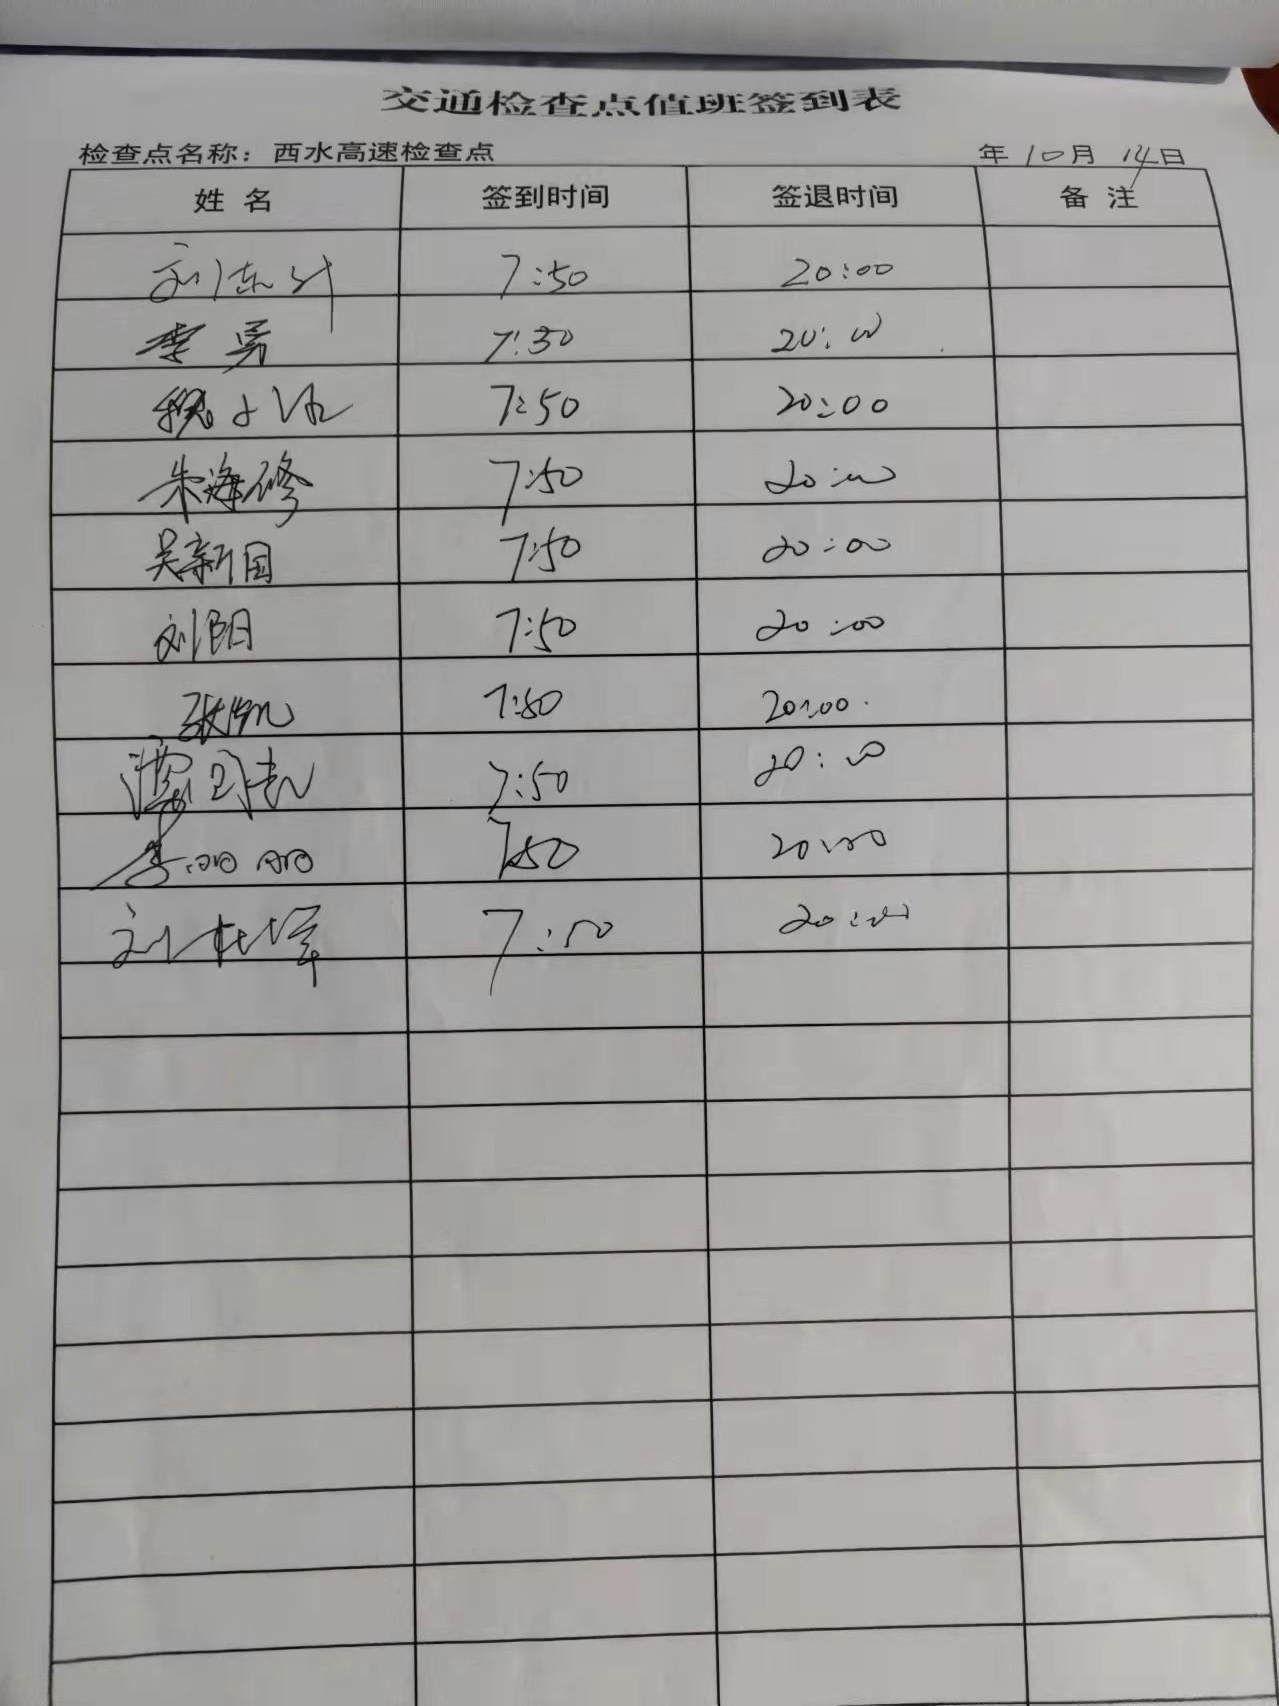 交通检查点值班签到表
检查点名称：西水高速检查点 年 10月 14日
姓 名 签到时间 签退时间 备 注
刘 7:50 20:00
李勇 7:30 20:00
7:50 20:00
朱海修 7:50 20:00
吴新国 7:50 20:00
刘阳 7:50 20:00
张帆 7:50 20:00
7:50 20:00
李丽丽 7:50 20:00
刘 7:50 20:00